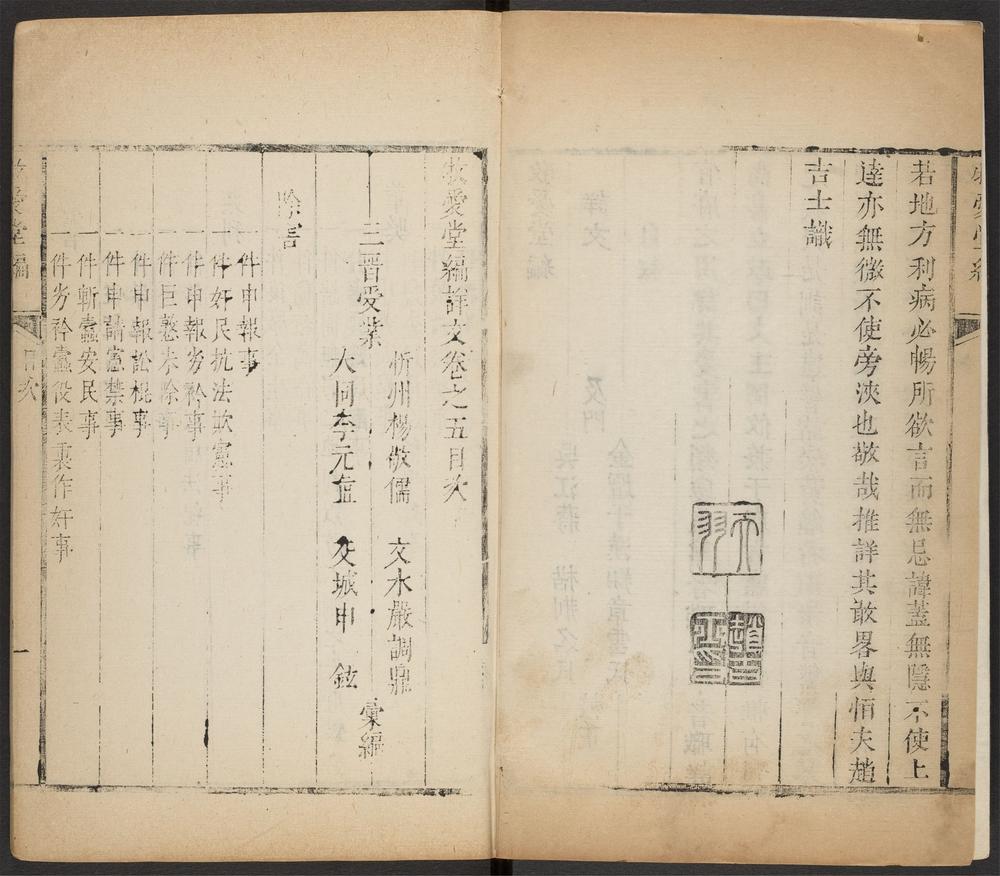 若地方利病必暢所欲言而無忌諱蓋無隱不使上
達亦無微不使旁浹也敬哉推詳其敢畧與恒夫趙
吉士識
趙吉
士印
牧愛堂編詳文卷之五目次
忻州楊敬儒 交水嚴調鼎
三晉愛業 彙編
大同李元 交城申 鉉
除害
一件申報事
一件奸民抗法欺憲事
一件申報劣衿事
一件巨憝未除事
一件申報訟棍事
一件申請憲禁事
一件斬蠹安民事
一件劣衿蠹役表裏作奸事
牧愛堂編 目次 一